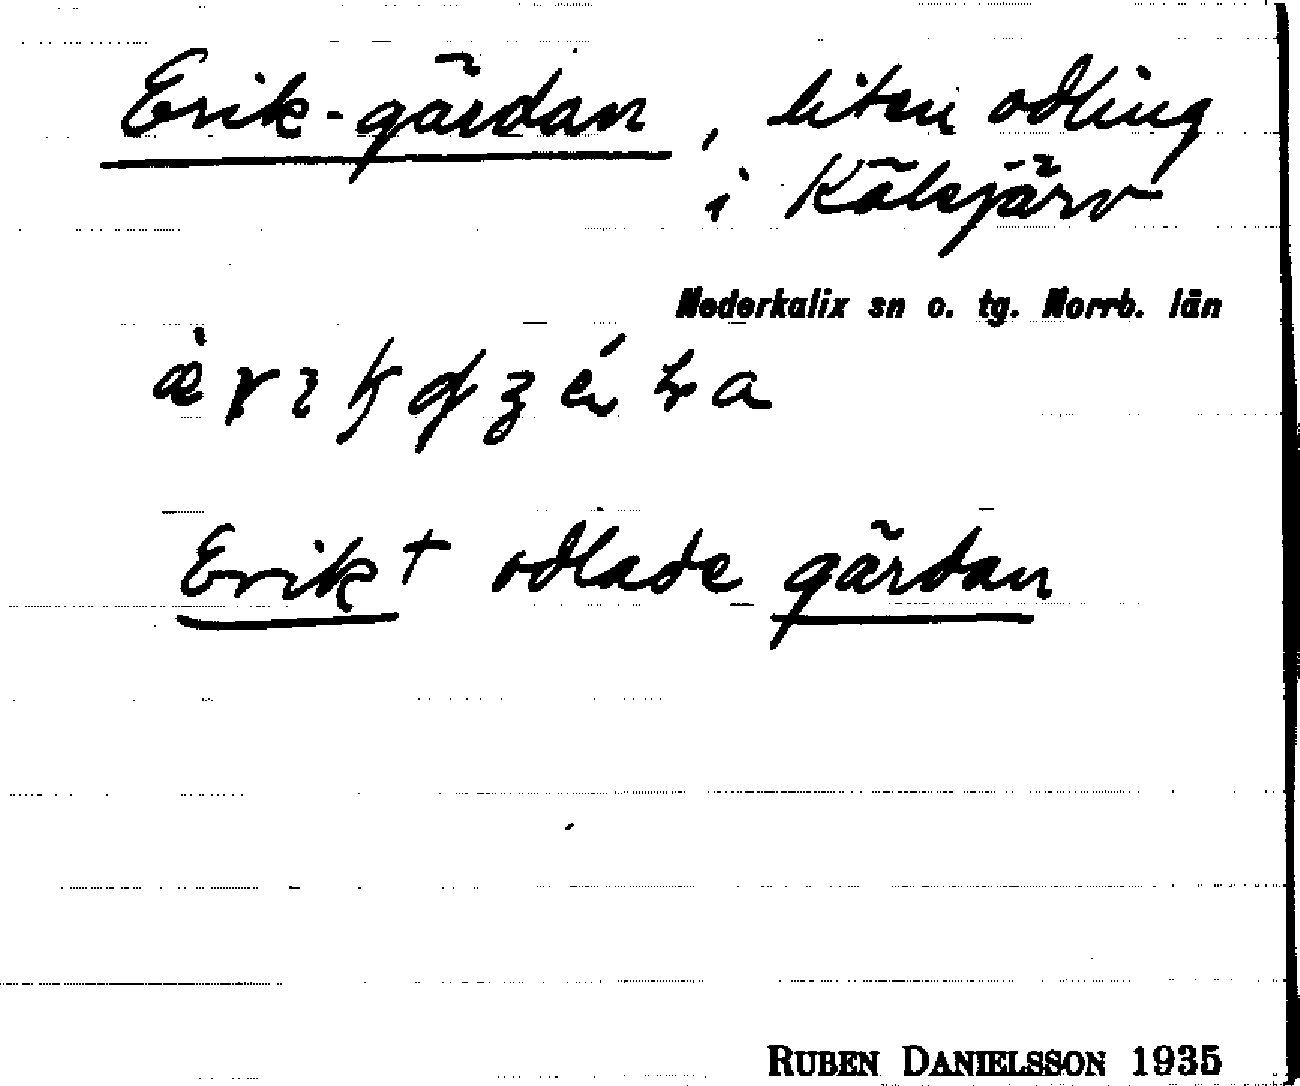 Erik-gärdan, liten odling
i Kälsjärv
Nederkalix sn o. tg. Norrb. län
Erik † odlade gärdan
RUBEN DANIELSSON 1935